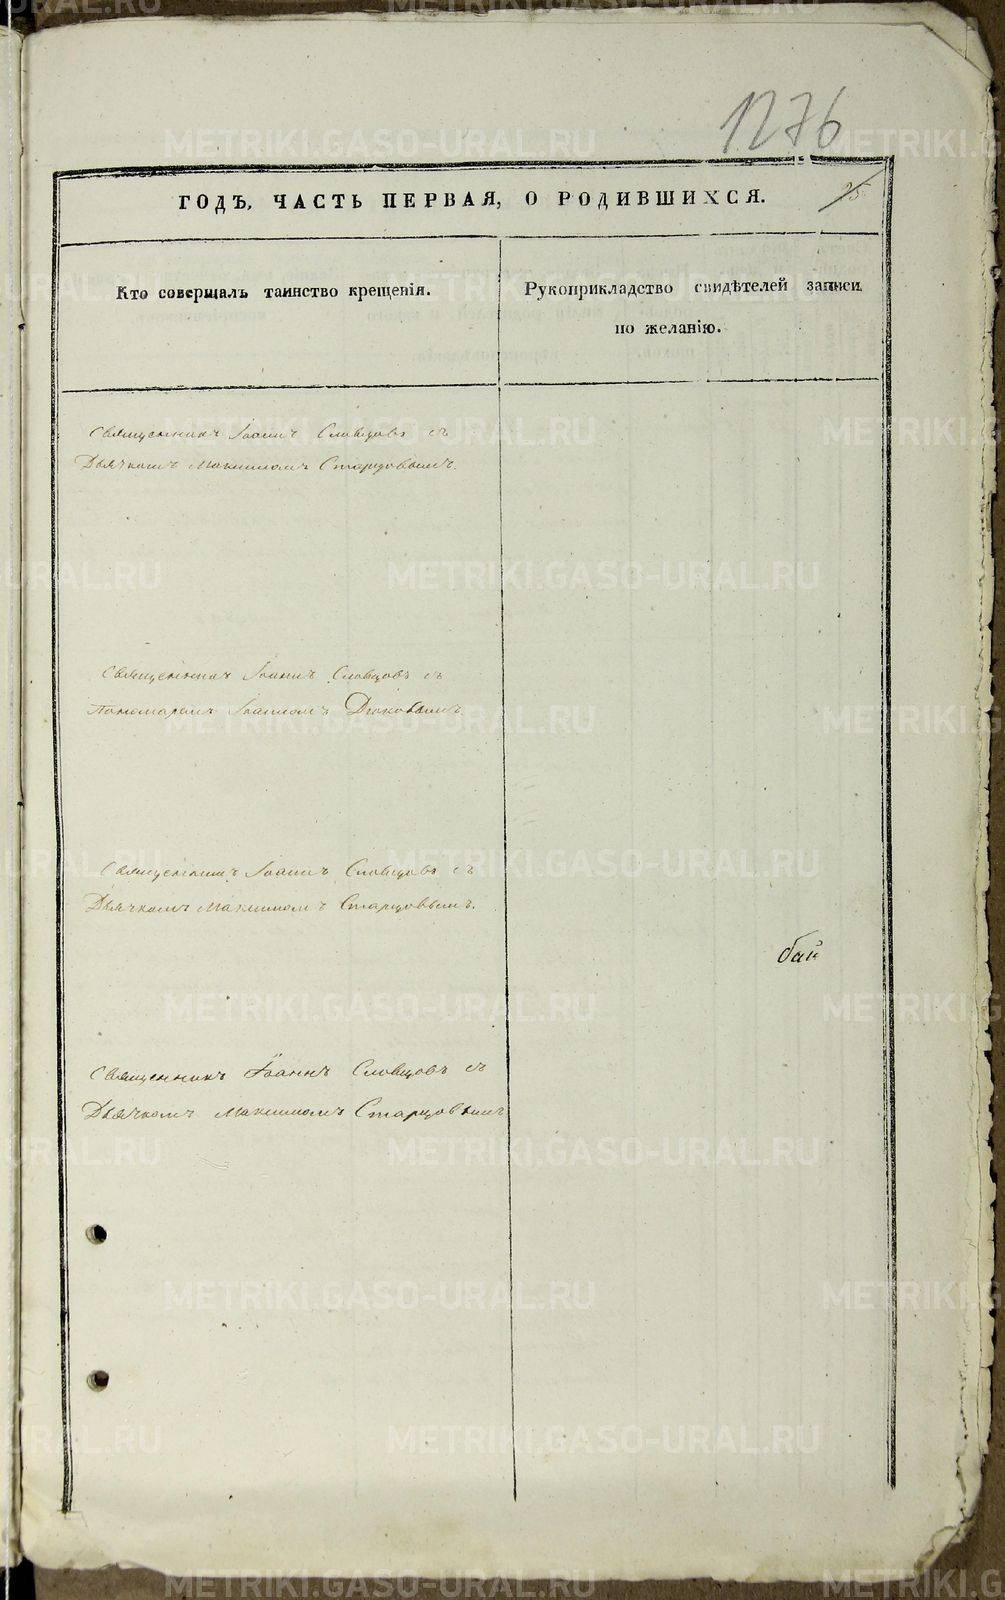 1276
25
ГОДЪ, ЧАСТЬ ПЕРВАЯ, О РОДИВШИХСЯ.
Кто совершалъ таинство крещенія.
Рукоприкладство свидѣтелей записи
по желанію.
Священникъ Іоаннъ Словцовъ съ
Дьячкомъ Максимомъ Старцовымъ.
Священникъ Іоаннъ Словцовъ съ
Пономаремъ Іоанномъ Дюковымъ
Священникъ Іоаннъ Словцовъ съ
Дьячкомъ Максимомъ Старцовымъ.
бай
Священникъ Іоаннъ Словцовъ съ
Дьячкомъ Максимомъ Старцовымъ
METRIKI.GASO-URAL.RU